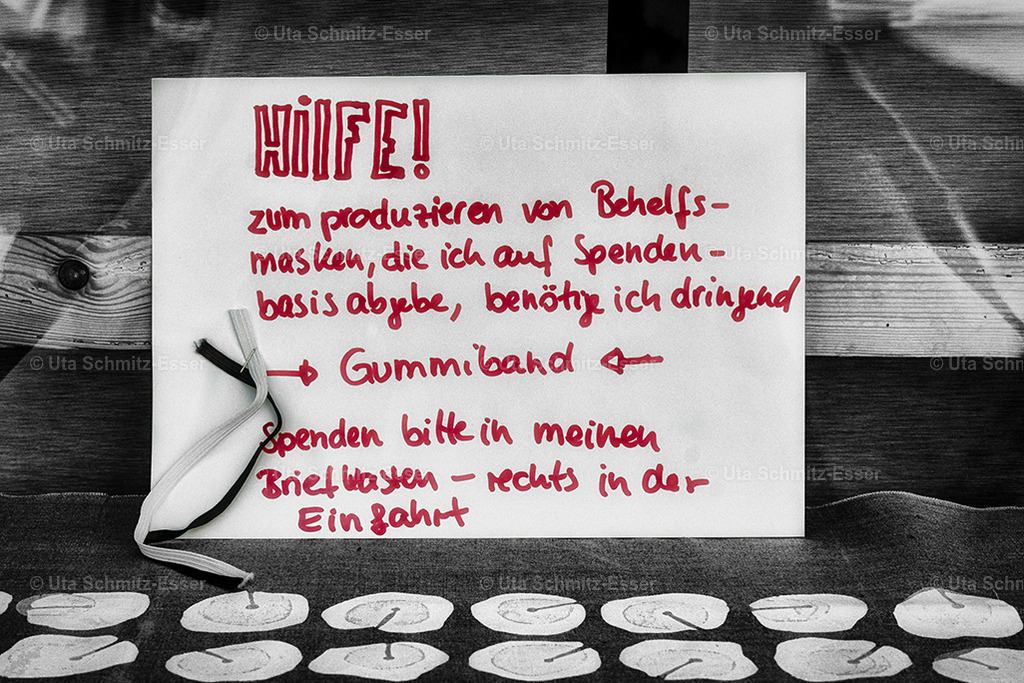 © Uta Schmitz-Esser © Uta Schmitz-Esser
HilFE!
© Uta Schmitz-Esser © Uta Schmitz-Esser © Uta Schmitz-Esser
zum produzieren von Behelfs-
masken, die ich auf Spenden-
© Uta Schmitz-Esser © Uta Schmitz-Esser
basis abgebe, benötige ich dringend
→ Gummiband ←
© Uta Schmitz-Esser © Uta Schmitz-Esser © Uta Schmitz-Esser
Spenden bitte in meinen
Briefkasten – rechts in der
© Uta Schmitz-Esser © Uta Schmitz-Esser
Einfahrt
© Uta Schmitz-Esser © Uta Schmitz-Esser © Uta Schmitz-Esser